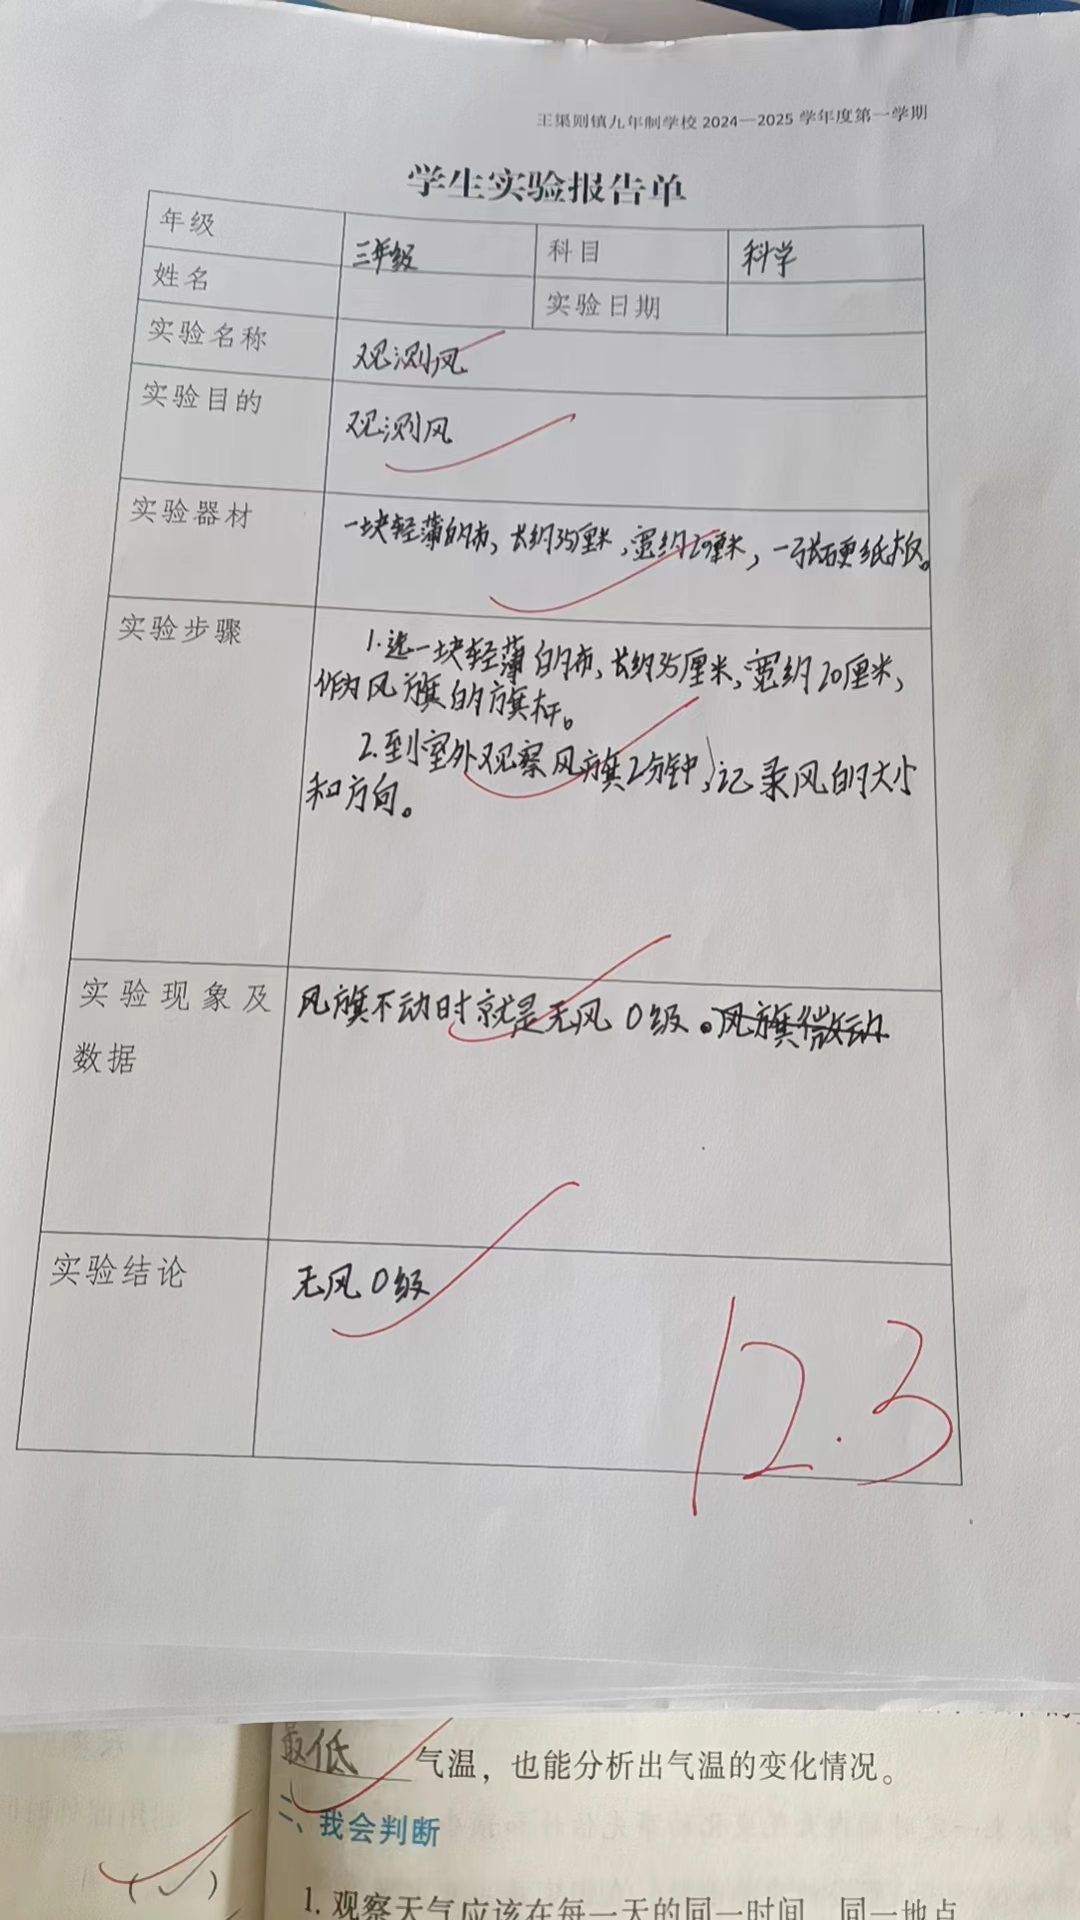 王渠则镇九年制学校 2024—2025 学年度第一学期
学生实验报告单
年级 三年级 科目 科学
姓名 实验日期
实验名称 观测风
实验目的 观测风
实验器材 一块轻薄的布,长约35厘米,宽约20厘米,一张硬纸板。
实验步骤 1.选一块轻薄的布,长约35厘米,宽约20厘米,
作为风旗的旗杆。
2.到室外观察风旗2分钟,记录风的大小
和方向。
实验现象及 风旗不动时就是无风0级。风旗微动
数据
实验结论 无风0级
12.3
最低 气温,也能分析出气温的变化情况。
二、我会判断
(✓)
1.观察天气应该在每一天的同一时间、同一地点